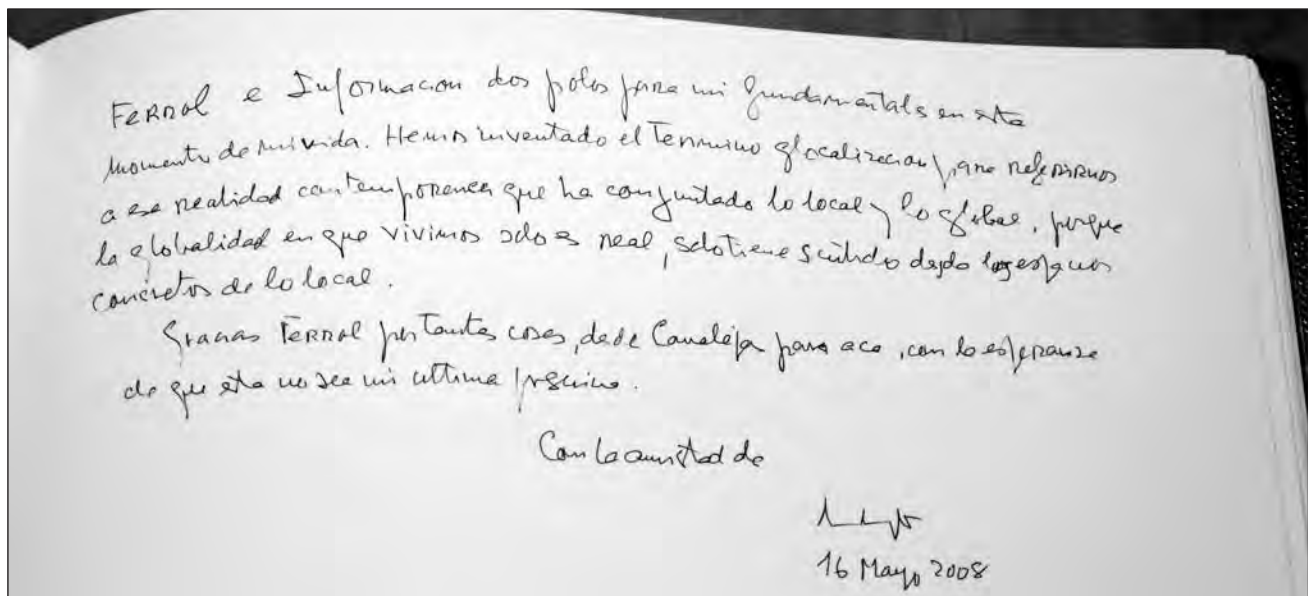 FERROL e Informacion dos polos para mi fundamentales en este
momento de mi vida. Hemos inventado el Termino glocalizacion para referirnos
a esa realidad contemporanea que ha conjuntado lo local y lo global, porque
la globalidad en que vivimos solo es real, solo tiene sentido desde los espacios
concretos de lo local.
Gracias FERROL por tantas cosas, desde Canaleja para aca, con la esperanza
de que esta no sea mi ultima pagina.
Con la amistad de
16 Mayo 2008